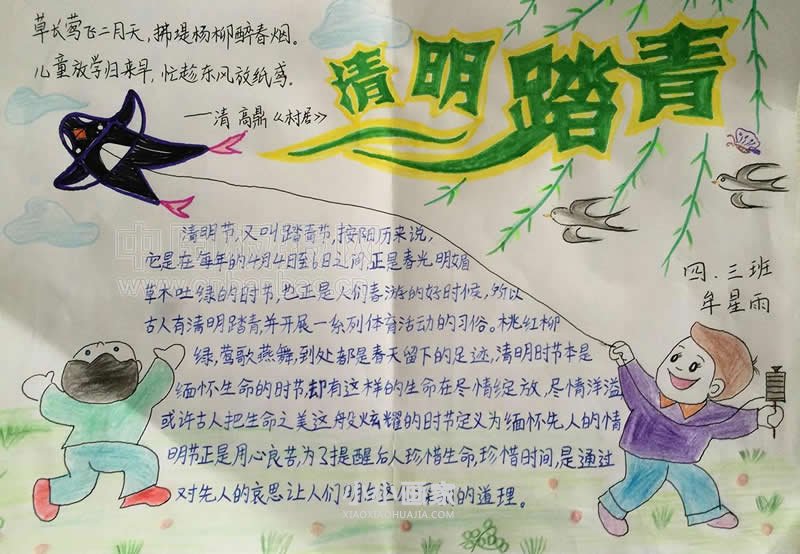 草长莺飞二月天，拂堤杨柳醉春烟。
儿童放学归来早，忙趁东风放纸鸢。
——清 高鼎《村居》
清明踏青
清明节，又叫踏青节，按阳历来说，
它是在每年的4月4日至6日之间，正是春光明媚
草木吐绿的时节，也正是人们春游的好时候，所以
古人有清明踏青，并开展一系列体育活动的习俗。桃红柳
绿，莺歌燕舞，到处都是春天留下的足迹，清明时节本是
缅怀生命的时节，却有这样的生命在尽情绽放，尽情洋溢
或许古人把生命之美这般炫耀的时节定义为缅怀先人的情
明节正是用心良苦，为了提醒后人珍惜生命，珍惜时间，是通过
对先人的哀思让人们明白这 的道理。
四.三班
牟星雨
小小画家
XIAOXIAOHUAJIA.COM